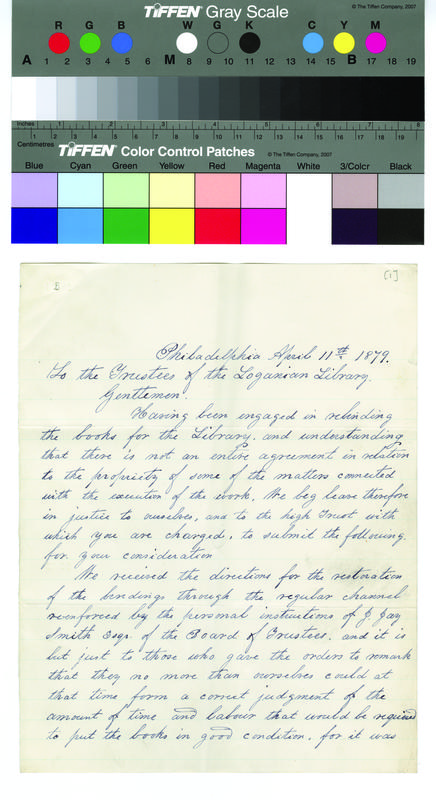 TIFFEN® Gray Scale
© The Tiffen Company, 2007
R G B W G K C Y M
A 1 2 3 4 5 6 M 8 9 10 11 12 13 14 15 B 17 18 19
Inches 1 2 3 4 5 6 7 8
Centimetres 1 2 3 4 5 6 7 8 9 10 11 12 13 14 15 16 17 18 19
TIFFEN® Color Control Patches
© The Tiffen Company, 2007
Blue Cyan Green Yellow Red Magenta White 3/Color Black
[1]
Philadelphia April 11th. 1879.
To the Trustees of the Loganian Library.
Gentlemen.
Having been engaged in rebinding
the books for the Library, and understanding
that there is not an entire agreement in relation
to the propriety of some of the matters connected
with the execution of the work, We beg leave therefore
in justice to ourselves, and to the high Trust with
which you are charged, to submit the following,
for your consideration
We received the directions for the restoration
of the bindings through the regular channel
reenforced by the personal instructions of J. Jay
Smith Esqr. of the Board of Trustees, and it is
but just to those who gave the orders to remark
that they no more than ourselves could at
that time form a correct judgment of the
amount of time and labour that would be required
to put the books in good condition, for it was